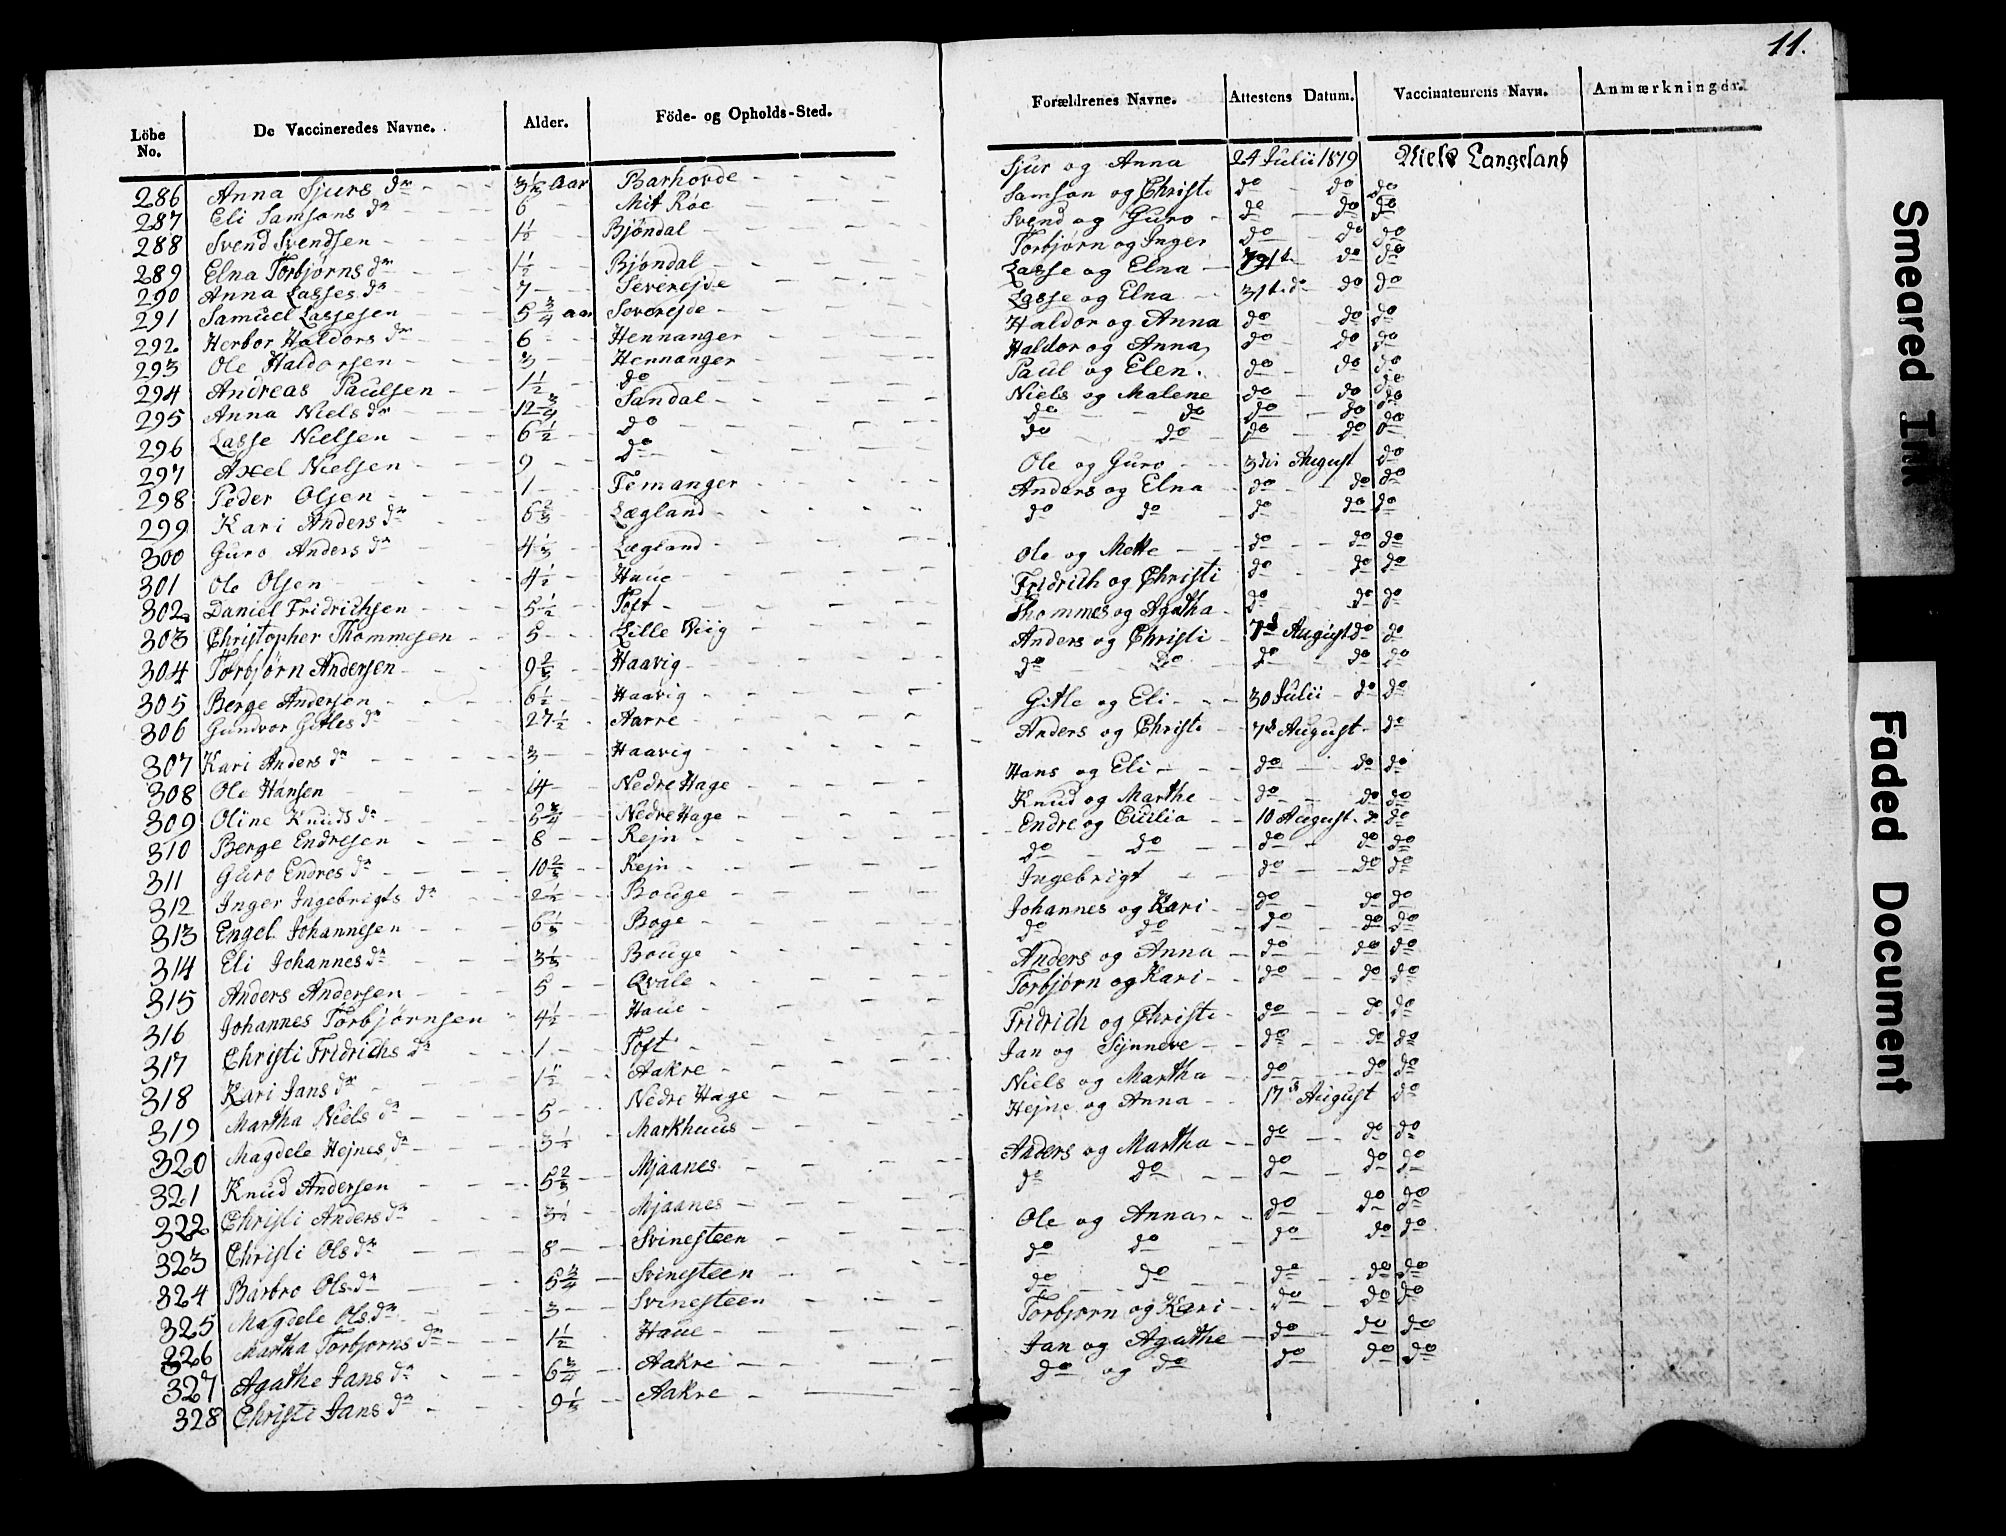 11.
Löbe No. De Vaccineredes Navne. Alder. Föde- og Opholds-Sted. Forældrenes Navne. Attestens Datum. Vaccinateurens Navn. Anmærkninger.
286 Anna Sjurs dr 3 1/2 Aar Barhovde Sjur og Anna 24 Julii 1819 Niels Langeland
287 Eli Samsons dr 6 Mit Røe Samson og Christi do do do
288 Svend Svendsen 1 1/2 Bjøndal Svend og Guro do do do
289 Elna Torbjørns dr 1 1/2 Bjøndal Torbjørn og Inger do do do
290 Anna Lasses dr 7 Severejde Lasse og Elna 31t do do
291 Samuel Lassesen 5 3/4 Aar Severejde Lasse og Elna 31t do do do
292 Herbor Haldors dr 6 Hennanger Haldor og Anna do do do
293 Ole Haldorsen 3 Hennanger Haldor og Anna do do do
294 Andreas Paulsen 1 1/2 do Paul og Elen do do do
295 Anna Niels dr 12 3/4 Sandal Niels og Malene do do do
296 Lasse Nielsen 6 1/2 do do do do do do
297 Axel Nielsen 9 do do do do do do
298 Peder Olsen 1 Femanger Ole og Guro 3die August do
299 Kari Anders dr 6 2/3 Lægland Anders og Elna do do do
300 Guro Anders dr 4 1/3 Lægland do do do do do
301 Ole Olsen 4 1/2 Haue Ole og Mette do do do
302 Daniel Fridrichsen 5 1/2 Toft Fridrich og Christi do do do
303 Christopher Thommesen 5 Lille Thommes og Agatha do do do
304 Torbjørn Andersen 9 2/3 Haavig Anders og Christi 7d August do do
305 Berge Andersen 6 1/2 Haavig do do do do do
306 Gundvor Gitles dr 27 1/2 Aarre Gitle og Eli 30 Julii do do
307 Kari Anders dr 3 Haavig Anders og Christi 7d August do
308 Ole Hansen 14 Nedre Hage Hans og Eli do do do
309 Oline Knuds dr 5 3/4 Nedre Hage Knud og Marthe do do do
310 Berge Endresen 8 Rejn Endre og Cicilia 10 August do do
311 Guro Endres dr 10 2/3 Rejn do do do do do
312 Inger Ingebrigts dr 2 1/2 Bouge Ingebrigt do do do
313 Engel Johannesen 6 1/3 Boge Johannes og Kari do do do
314 Eli Johannes dr 3 1/3 Bouge do do do do do
315 Anders Andersen 5 Qvale Anders og Anna do do do
316 Johannes Torbjørnsen 4 1/2 Haue Torbjørn og Kari do do do
317 Christi Fridrichs dr 1 Toft Fridrich og Christi do do do
318 Kari Jans dr 1 1/2 Aakre Jan og Synneve do do do
319 Martha Niels dr 5 Nedre Hage Niels og Martha do do do
320 Magdele Hejnes dr 3 1/2 Markhuus Hejne og Anna 17d August do
321 Knud Andersen 5 2/3 Mjaanes Anders og Martha do do do
322 Christi Anders dr 3 1/2 Mjaanes do do do do do
323 Christi Ols dr 8 Svinesteen Ole og Anna do do do
324 Barbro Ols dr 5 3/4 Svinesteen do do do do do
325 Magdele Ols dr 3 Svinesteen do do do do do
326 Martha Torbjørns dr 1 1/2 Haue Torbjørn og Kari do do do
327 Agathe Jans dr 6 3/4 Aakre Jan og Agathe do do do
328 Christi Jans dr 9 1/3 Aakre do og do do do do
Smeared Ink
Faded Document